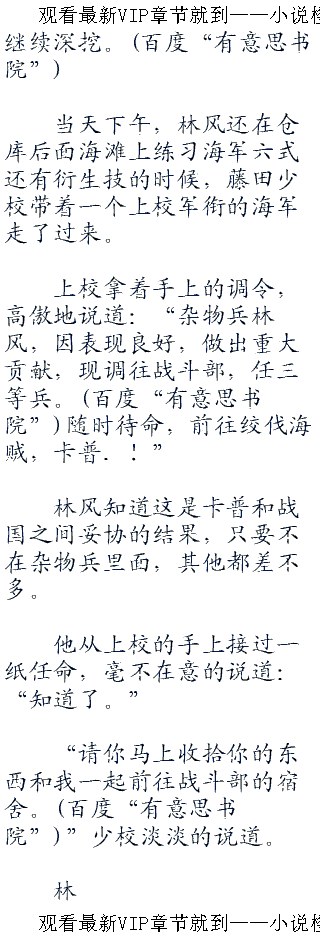 观看最新VIP章节就到——小说检
继续深挖。(百度“有意思书
院”)
当天下午，林风还在仓
库后面海滩上练习海军六式
还有衍生技的时候，藤田少
校带着一个上校军衔的海军
走了过来。
上校拿着手上的调令，
高傲地说道：“杂物兵林
风，因表现良好，做出重大
贡献，现调往战斗部，任三
等兵。(百度“有意思书
院”)随时待命，前往绞伐海
贼，卡普．！”
林风知道这是卡普和战
国之间妥协的结果，只要不
在杂物兵里面，其他都差不
多。
他从上校的手上接过一
纸任命，毫不在意的说道：
“知道了。”
“请你马上收拾你的东
西和我一起前往战斗部的宿
舍。(百度“有意思书
院”)”少校淡淡的说道。
林
观看最新VIP章节就到——小说检